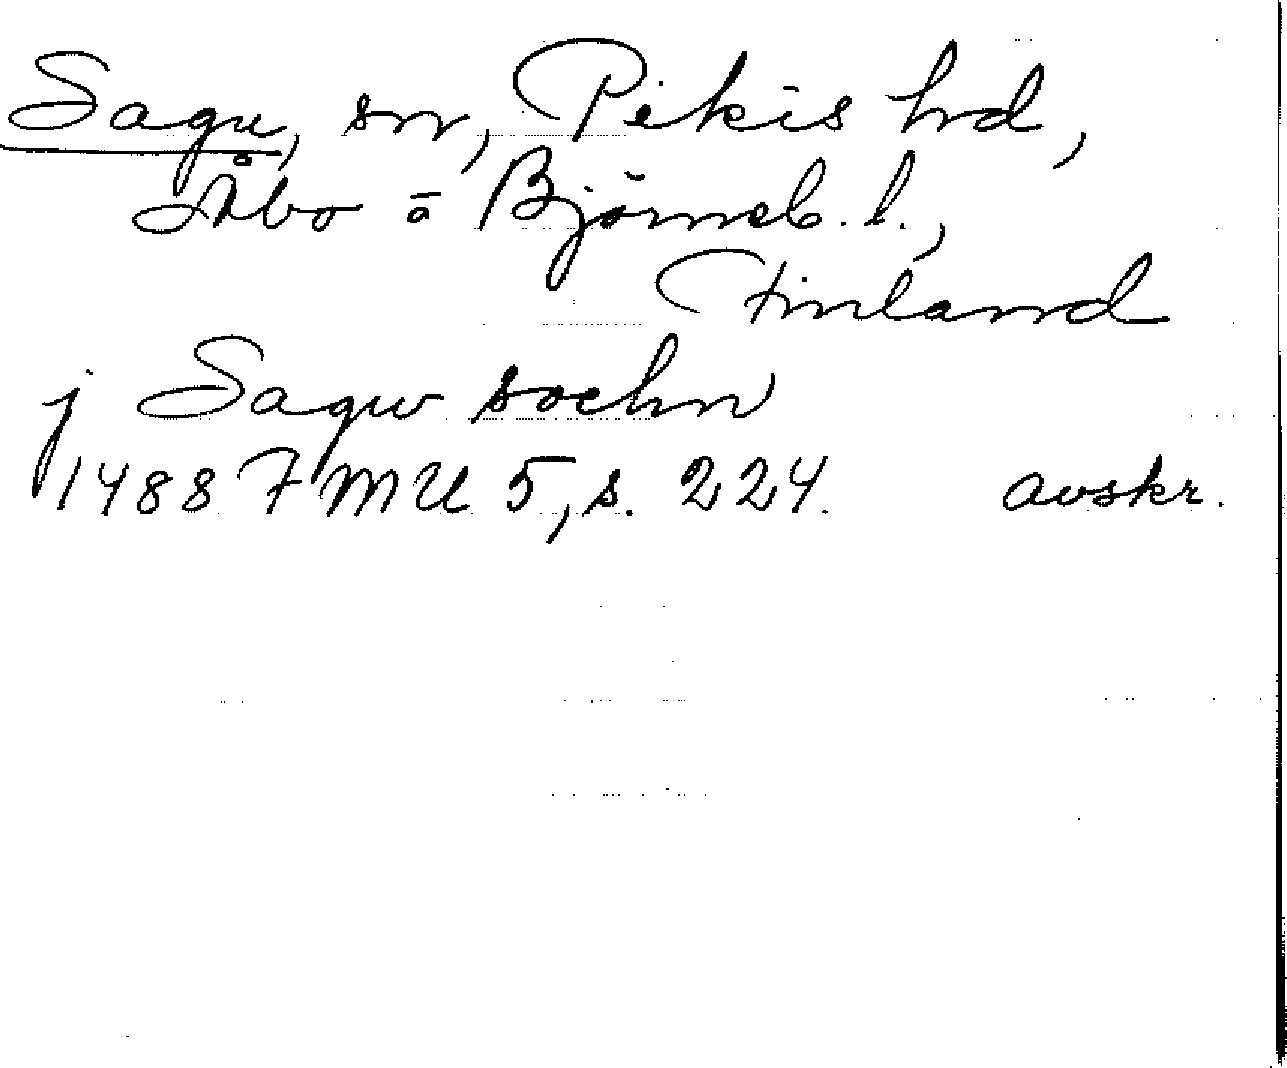 Sagu, sn, Pikis hd,
Åbo o Björneb. l.,
Finland
j Sagw sochn
1488 FMU 5, s. 224. avskr.